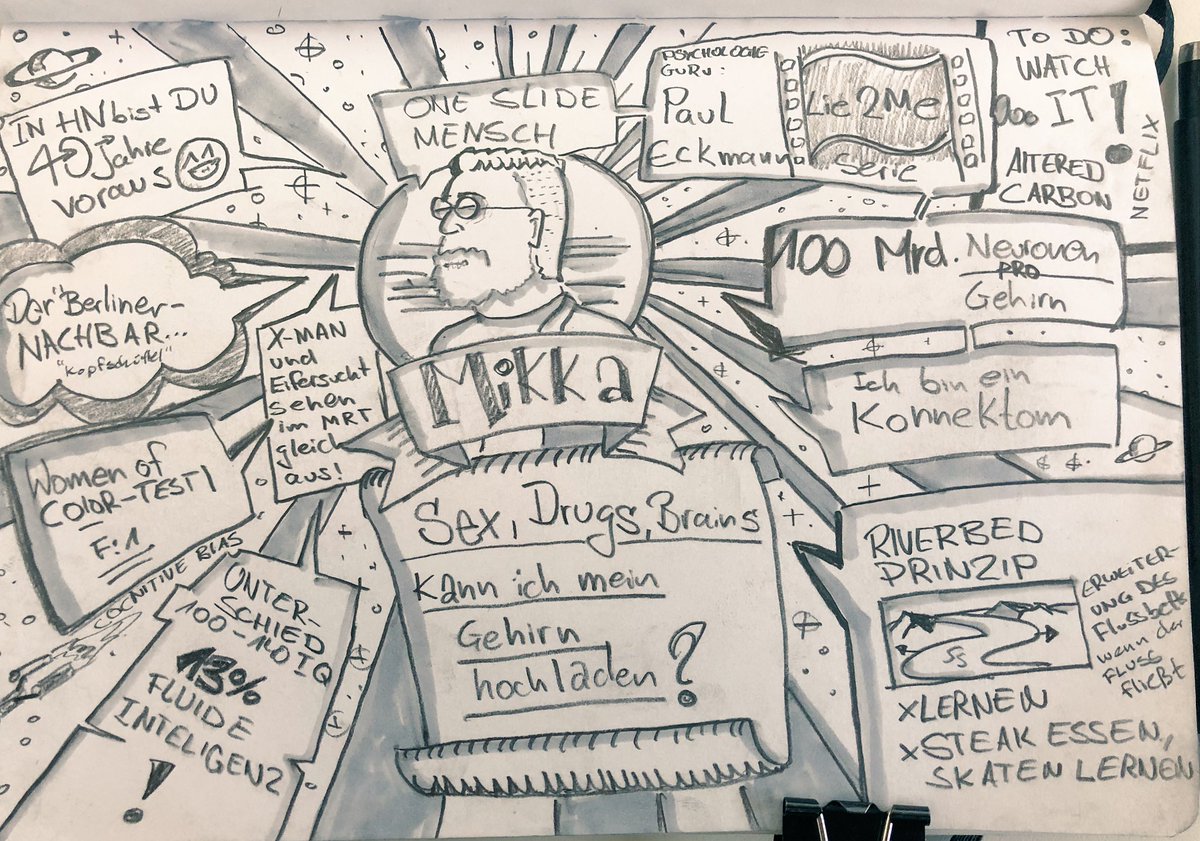 ONE SLIDE
MENSCH
MiKKa
Sex, Drugs, Brains
Kann ich mein
Gehirn
hochladen?
IN HN bist DU
40 Jahre
voraus
Der "Berliner-
NACHBAR...
"Kopfschüttel"
X-MAN
und
Eifersucht
Sehen
im MRT
gleich
aus!
Women of
COLOR-TEST!
F:1
COCNITIVE BIAS
UNTER-
SCHIED
100-140 IQ
13%
FLUIDE
INTELIGENZ
!
PSYCHOLOGIE
GURU:
Paul
Eckmann
Lie 2 Me
Serie
TO DO:
WATCH
IT!
AlTERED
CARBON
NETFLIX
100 Mrd. Neuronen
PRO
Gehirn
Ich bin ein
Konnektom
RIVERBED
PRINZIP
ERWEITER-
UNG DES
Flussbetts
wenn der
FLUSS
fließt
xLERNEN
xSTEAK ESSEN,
SKATEN LERNEN